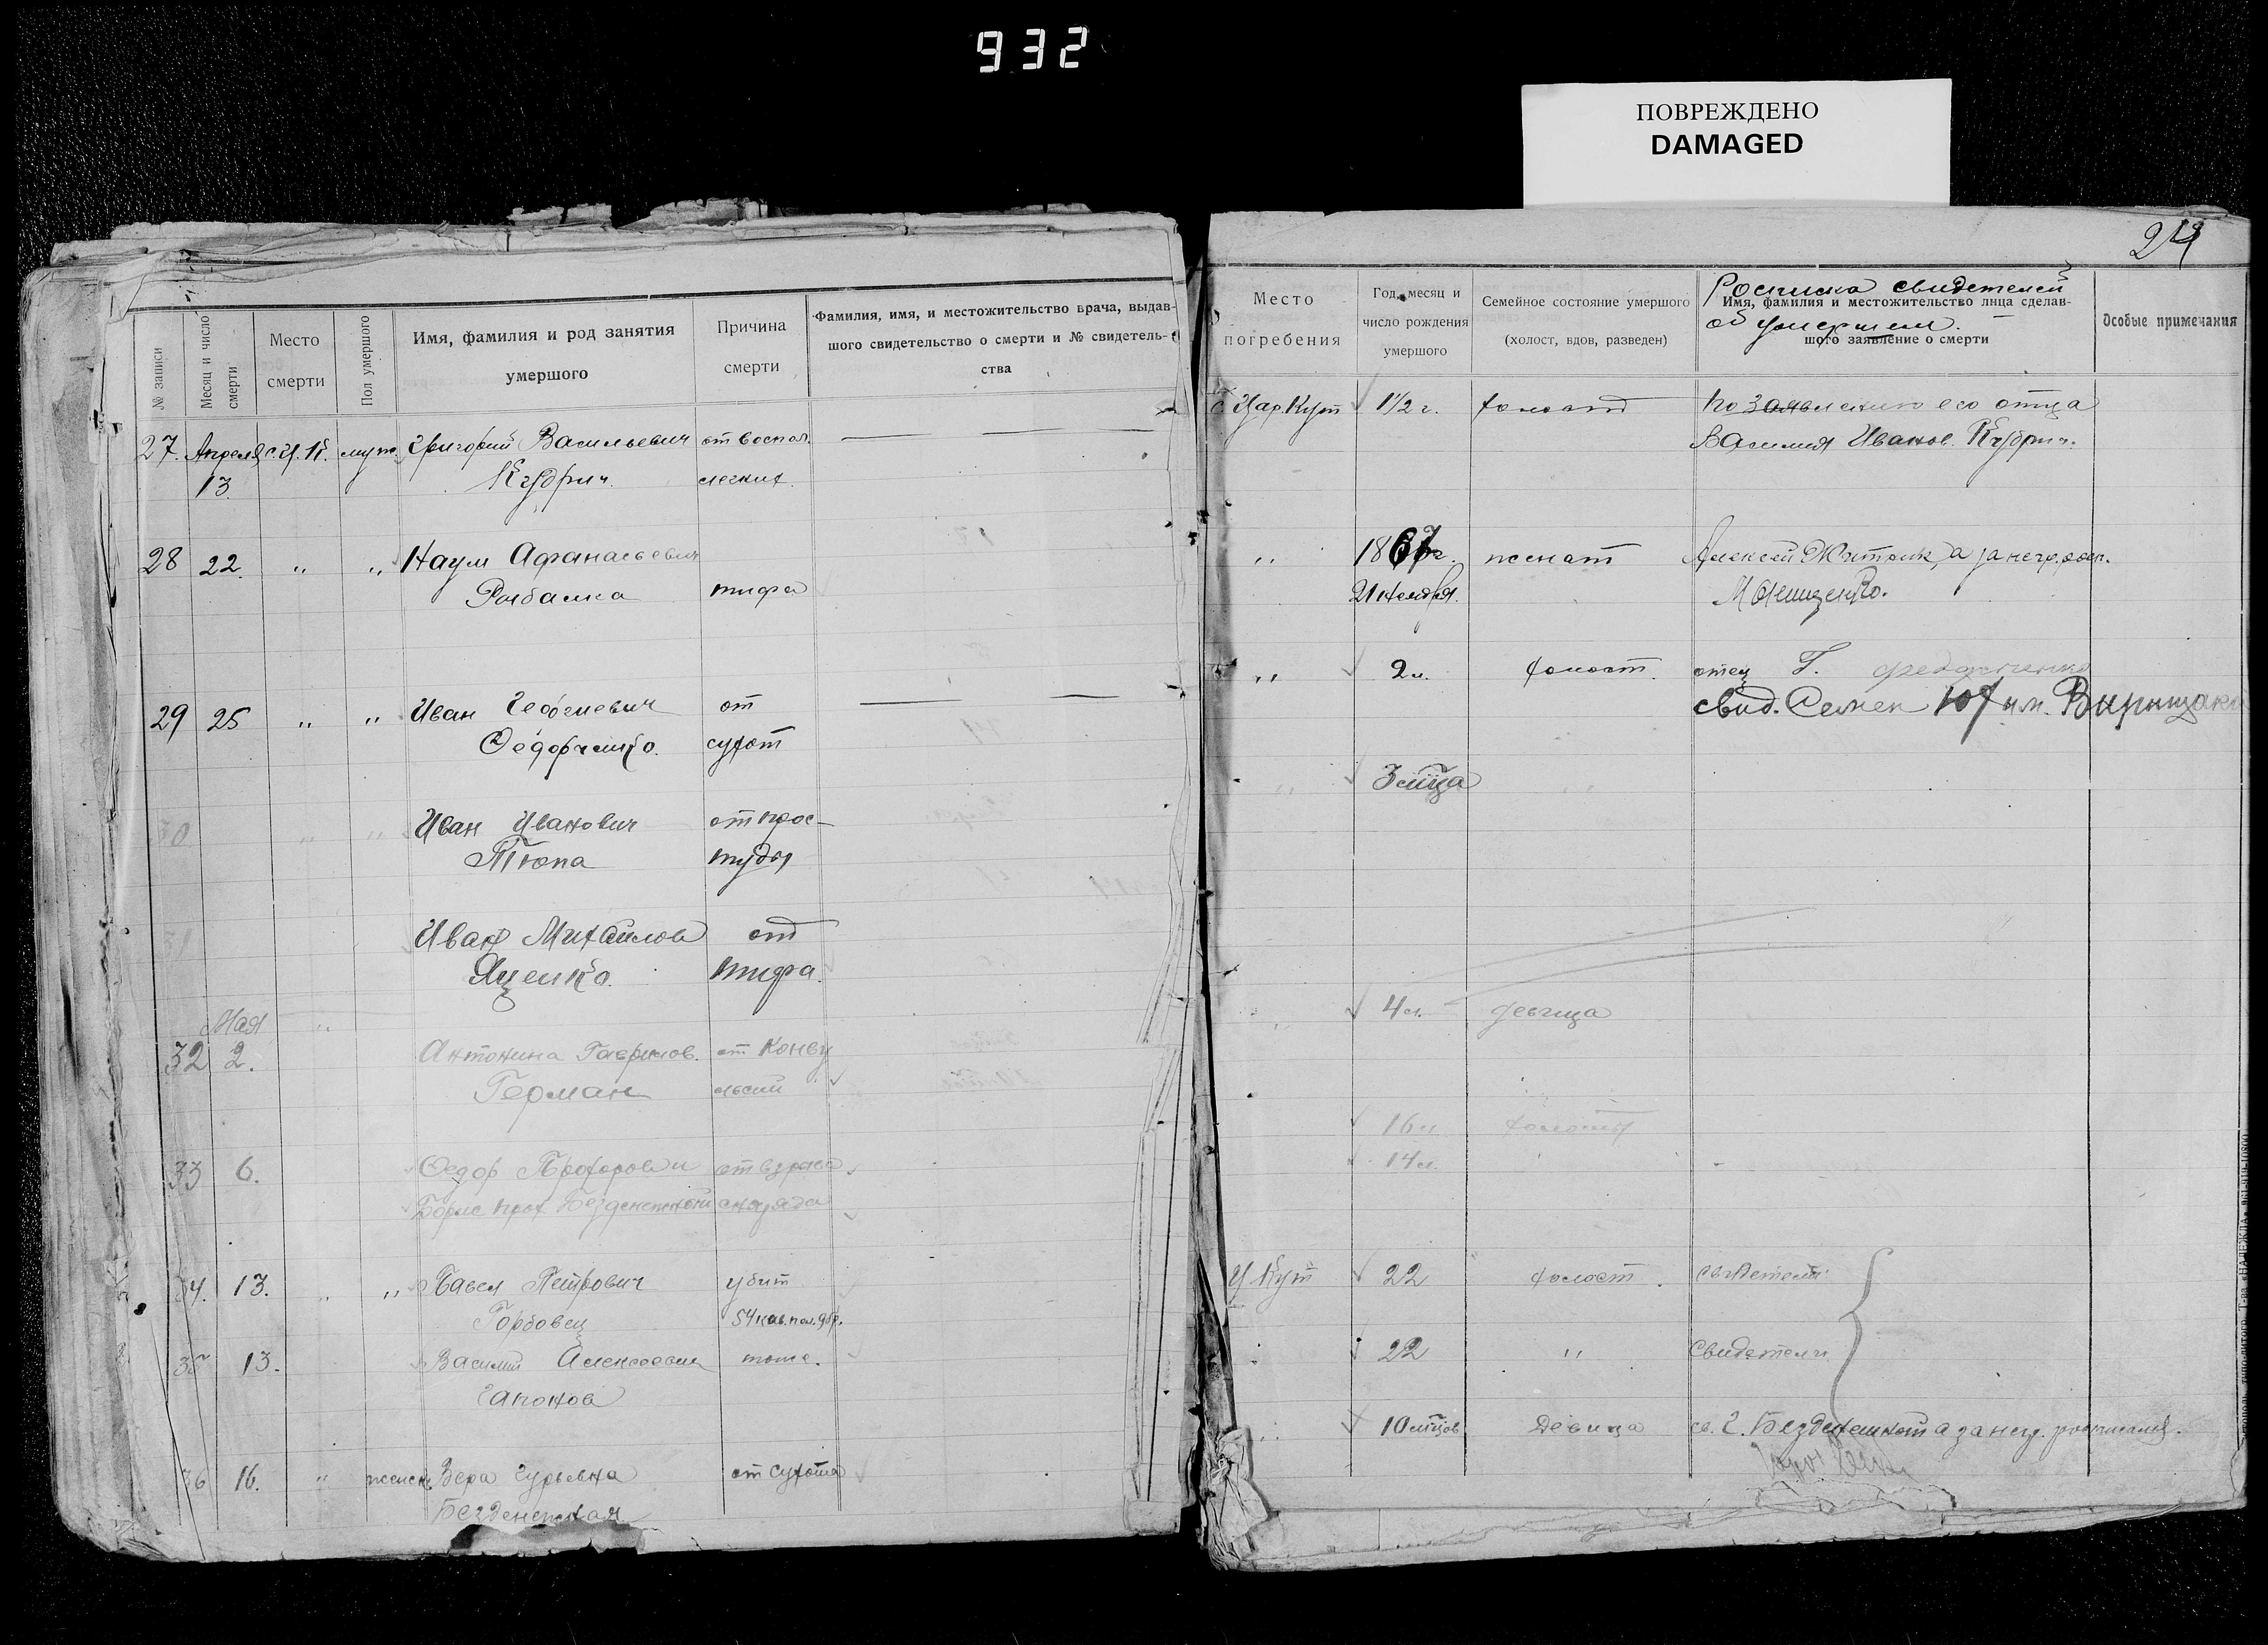 932
ПОВРЕЖДЕНО
DAMAGED
№ записи
Месяц и число смерти
Место смерти
Пол умершого
Имя, фамилия и род занятия умершого
Причина смерти
Фамилия, имя, и местожительство врача, выдав-
шого свидетельство о смерти и № свидетель-
ства
27. Апреля с.Ц.К. муж. Григорий Васильевич от воспал.
13. Кудрич. легких.
28 22. " " Наум Афанасьевич
Рыбалка тифа
29 25 " " Иван Георгиевич от
Федорченко. сухот
30 " " Иван Иванович от прос-
Тюпа туды
31 Иван Михайлов от
Яценко. тифа.
Мая "
32 2. Антонина Гаврилов. от Конву
Герман льсии
33 6. Федор Прохорови от взрыва
Борис Прох. Безденежный снаряда
34. 13. " " Павел Петрович убит
Горбовец 54 кав. пол.
35 13. Василий Алексеевич тоже.
Гапонов
36 16. " женск. Вера Гурьевна от сухоты
Безденежная
24
Место
погребения
Год, месяц и
число рождения
умершого
Семейное состояние умершого
(холост, вдов, разведен)
Росписка свидетелей
Имя, фамилия и местожительство лица сделав-
об умершем.
шого заявление о смерти
Особые примечания
с Цар. Кут 1½ г. холост по заявлению его отца
Василия Иванов. Кудрич.
" 1867г. женат Алексей а за негр. росп.
21 Ноября. Монищенко.
" 2 л. холост. отец Г. Федорченко
свид. Семен
" 3 м-ца "
" 4 л. девица
16 л. холосты
14 л.
Ц Кут 22 холост. свидетели
" 22 " Свидетели
" 10 м-цов Девица св. Г. Безденежный а за негр. росписался.